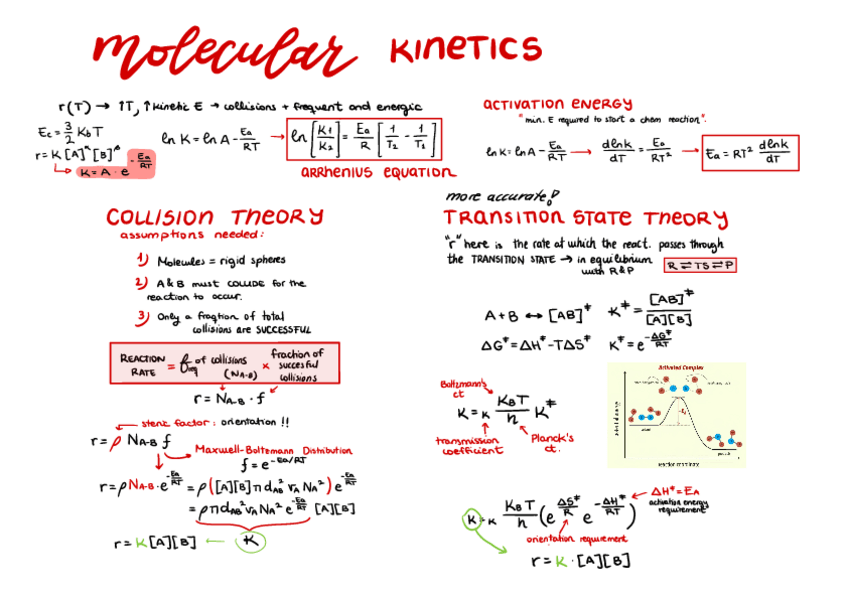 molecular KINETICS
r(T) → ↑T, ↑kinetic E → collisions + frequent and energic
Ec = 3/2 KbT
r = K[A]ᵅ[B]ᵝ
↳ K = A · e^-Ea/RT
ln K = ln A - Ea/RT → ln[K1/K2] = Ea/R [1/T2 - 1/T1]
ARRHENIUS EQUATION
ACTIVATION ENERGY
"min. E required to start a chem reaction".
ln K = ln A - Ea/RT → dlnk/dT = Ea/RT² → Ea = RT² dlnk/dT
COLLISION THEORY
assumptions needed:
1) Molecules = rigid spheres
2) A & B must COLLIDE for the
reaction to occur.
3) Only a fraction of total
collisions are SUCCESSFUL
REACTION RATE = freq of collisions (NA-B) × fraction of succesful collisions
r = NA-B · f
steric factor: orientation !!
r = ρ NA-B f
Maxwell-Boltzmann Distribution
f = e^-Ea/RT
r = ρ NA-B · e^-Ea/RT = ρ([A][B] π dAB² vA NA²) e^-Ea/RT
= ρ π dAB² vA NA² e^-Ea/RT [A][B]
r = K[A][B] ← K
more accurate!
TRANSITION STATE THEORY
"r" here is the rate at which the react. passes through
the TRANSITION STATE → in equilibrium
with R & P
R ⇌ TS ⇌ P
A + B ↔ [AB]‡ K‡ = [AB]‡/[A][B]
ΔG‡ = ΔH‡ - TΔS‡ K‡ = e^-ΔG‡/RT
Boltzmann's
ct
K = κ KBT/h K‡
transmission
coefficient
Planck's
ct.
Activated Complex
reaction coordinate
K = κ KBT/h (e^ΔS‡/R e^-ΔH‡/RT)
ΔH‡ = EA
activation energy
requirement
orientation requirement
r = K · [A][B]